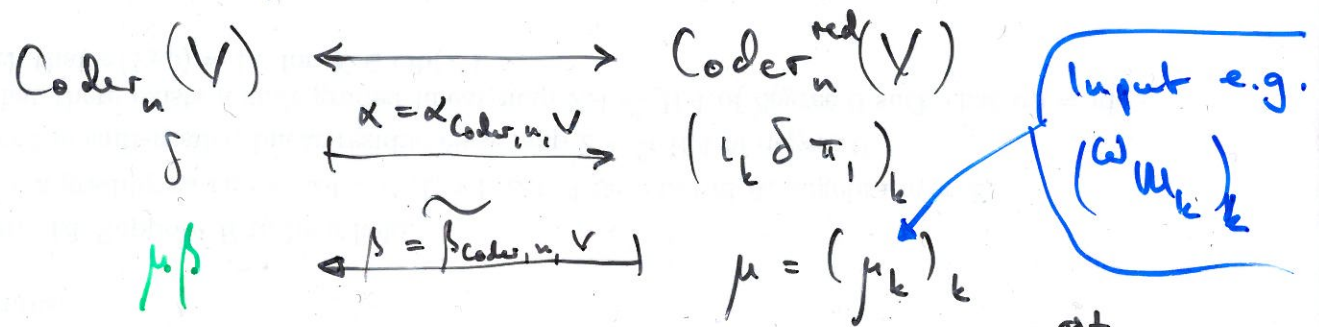 Coder_n(V) ⟷ Coder_n^{red}(V)
δ α = α_{Coder,n,V} ⟼ (ι_k δ π_1)_k
μβ β = β_{Coder,n,V} μ = (μ_k)_k
Input e.g.
(ω m_k)_k